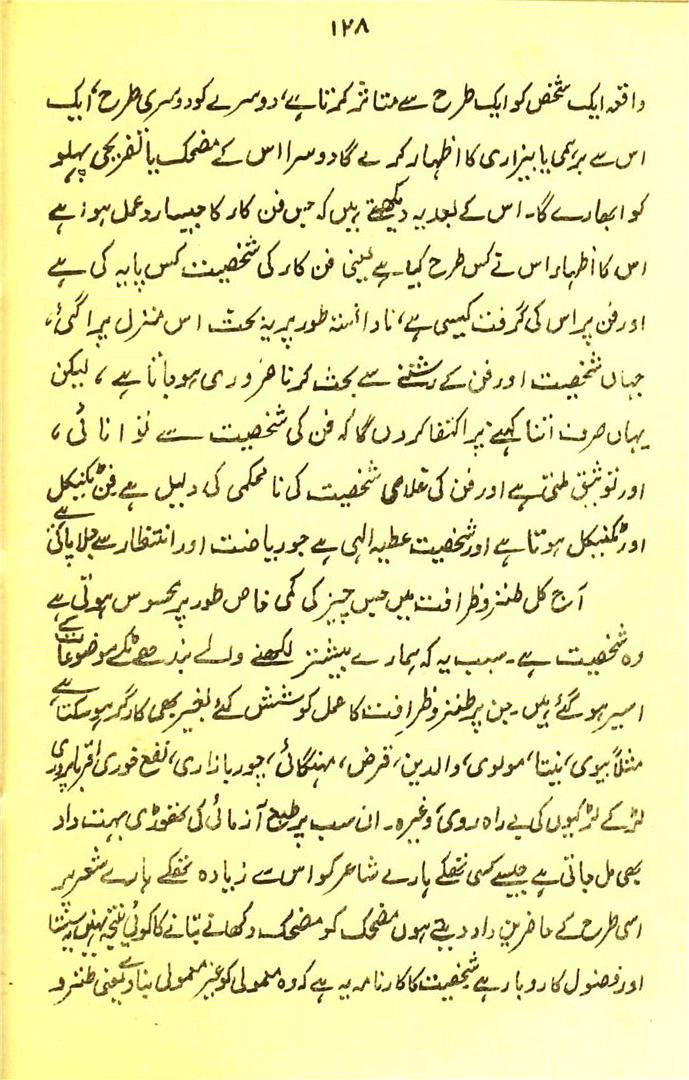 ۱۲۸
واقعہ ایک شخص کو ایک طرح سے متاثر کرتا ہے، دوسرے کو دوسری طرح، ایک
اس سے برہمی یا بیزاری کا اظہار کرے گا دوسرا اس کے مضحک یا تفریحی پہلو
کو ابھارے گا۔ اس کے بعد یہ دیکھتے ہیں کہ جس فن کار کا جیسا ردعمل ہوا ہے
اس کا اظہار اس نے کس طرح کیا ہے یعنی فن کار کی شخصیت کس پایہ کی ہے
اور فن پر اس کی گرفت کیسی ہے، نادانستہ طور پر یہ بحث اس منزل پر آگئی،
جہاں شخصیت اور فن کے رشتے سے بحث کرنا ضروری ہو جاتا ہے، لیکن
یہاں صرف اتنا کہنے پر اکتفا کروں گا کہ فن کی شخصیت سے توانائی،
اور توثیق ملتی ہے اور فن کی غلامی شخصیت کی نامحکمی کی دلیل ہے فن ٹکنیکل
اور ٹکنیکل ہوتا ہے اور شخصیت عطیہ الہی ہے جو ریاضت اور انتظار سے جلا پاتی ہے
آج کل طنز و ظرافت میں جس چیز کی کمی خاص طور پر محسوس ہوتی ہے
وہ شخصیت ہے۔ سبب یہ کہ ہمارے بیشتر لکھنے والے بندھے ٹکے موضوعات کے
اسیر ہو گئے ہیں۔ جن پر طنز و ظرافت کا عمل کوشش کئے بغیر بھی کارگر ہو سکتا ہے
مثلاً بیوی، نیتا، مولوی، والدین، قرض، مہنگائی، چور بازاری، نفع خوری، اقربا پروری
لڑکے لڑکیوں کی بے راہ روی، وغیرہ۔ ان سب پر طبع آزمائی کی تھوڑی بہت داد
بھی مل جاتی ہے جیسے کسی تھکے ہارے شاعر کو اس سے زیادہ تھکے ہارے شعر پر
اسی طرح کے حاضرین داد دیتے ہوں مضحک کو مضحک دکھانے بتانے کا کوئی نتیجہ نہیں یہ سستا
اور فضول کاروبار ہے شخصیت کا کارنامہ یہ ہے کہ وہ معمولی کو غیر معمولی بنا دے یعنی طنز و